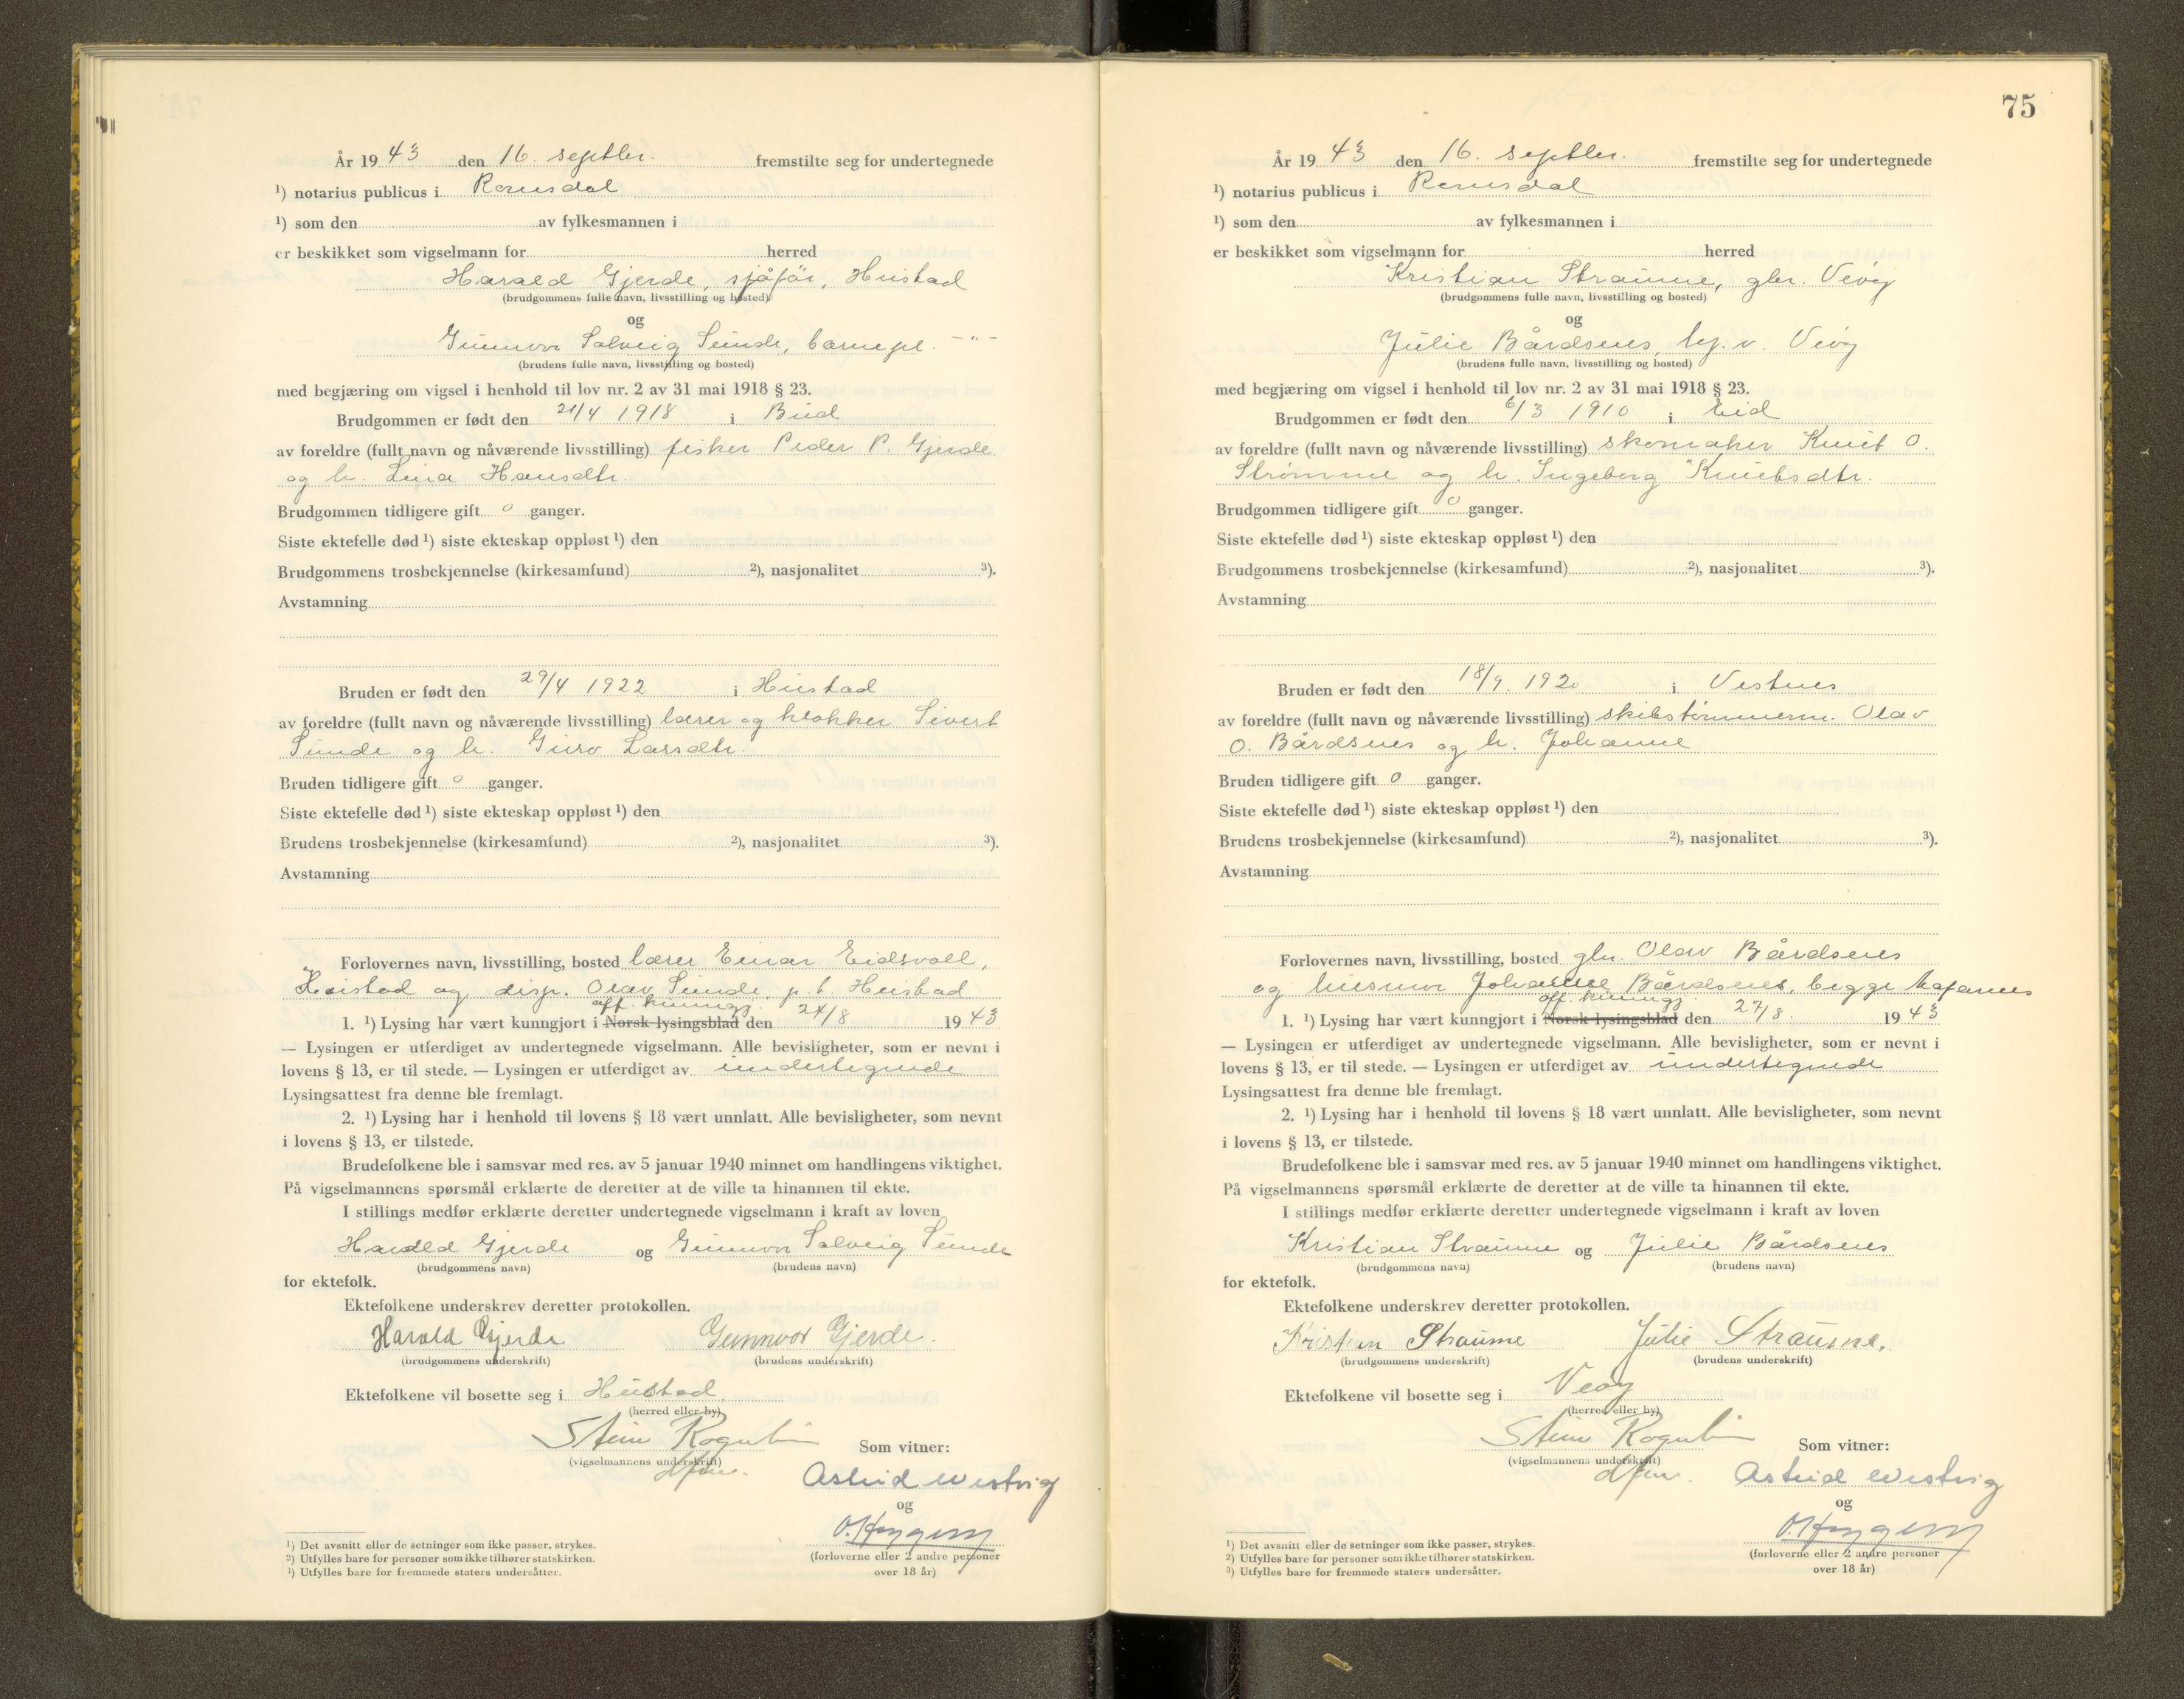 År 19 43 den 16. septbr. fremstilte seg for undertegnede
¹) notarius publicus i Romsdal
¹) som den av fylkesmannen i
er beskikket som vigselmann for herred
Harald Gjerde, sjåfør, Hustad
(brudgommens fulle navn, livsstilling og bosted)
og
Gunnvor Solveig Sunde, barnepl. -"-
(brudens fulle navn, livsstilling og bosted)
med begjæring om vigsel i henhold til lov nr. 2 av 31 mai 1918 § 23.
Brudgommen er født den 21/4 1918 i Bud
av foreldre (fullt navn og nåværende livsstilling) fisker Peder P. Gjerde
og h. Lina Hansdtr.
Brudgommen tidligere gift 0 ganger.
Siste ektefelle død ¹) siste ekteskap oppløst ¹) den
Brudgommens trosbekjennelse (kirkesamfund) ²), nasjonalitet ³).
Avstamning
Bruden er født den 29/4 1922 i Hustad
av foreldre (fullt navn og nåværende livsstilling) lærer og klokker Sivert
Sunde og h. Guro Larsdtr.
Bruden tidligere gift 0 ganger.
Siste ektefelle død ¹) siste ekteskap oppløst ¹) den
Brudens trosbekjennelse (kirkesamfund) ²), nasjonalitet ³).
Avstamning
Forlovernes navn, livsstilling, bosted lærer Einar Eidsvoll,
Hustad og disp. Olav Sunde, p.t. Hustad
off. kunngj.
1. ¹) Lysing har vært kunngjort i Norsk lysingsblad den 24/8 19 43
— Lysingen er utferdiget av undertegnede vigselmann. Alle bevisligheter, som er nevnt i
lovens § 13, er til stede. — Lysingen er utferdiget av undertegnede
Lysingsattest fra denne ble fremlagt.
2. ¹) Lysing har i henhold til lovens § 18 vært unnlatt. Alle bevisligheter, som nevnt
i lovens § 13, er tilstede.
Brudefolkene ble i samsvar med res. av 5 januar 1940 minnet om handlingens viktighet.
På vigselmannens spørsmål erklærte de deretter at de ville ta hinannen til ekte.
I stillings medfør erklærte deretter undertegnede vigselmann i kraft av loven
Harald Gjerde og Gunnvor Solveig Sunde
(brudgommens navn) (brudens navn)
for ektefolk.
Ektefolkene underskrev deretter protokollen.
Harald Gjerde Gunnvor Gjerde.
(brudgommens underskrift) (brudens underskrift)
Ektefolkene vil bosette seg i Hustad.
(herred eller by)
Stein Rognlien
(vigselmannens underskrift)
dfm.
Som vitner:
Astrid Westvig
og
(forloverne eller 2 andre personer
over 18 år)
¹) Det avsnitt eller de setninger som ikke passer, strykes.
²) Utfylles bare for personer som ikke tilhører statskirken.
³) Utfylles bare for fremmede staters undersåtter.
75
År 19 43 den 16. septbr. fremstilte seg for undertegnede
¹) notarius publicus i Romsdal
¹) som den av fylkesmannen i
er beskikket som vigselmann for herred
Kristian Straume, gbr. Veøy
(brudgommens fulle navn, livsstilling og bosted)
og
Julie Bårdsnes, hj. v. Veøy
(brudens fulle navn, livsstilling og bosted)
med begjæring om vigsel i henhold til lov nr. 2 av 31 mai 1918 § 23.
Brudgommen er født den 6/3 1910 i Eid
av foreldre (fullt navn og nåværende livsstilling) skomaker Knut O.
Strømme og h. Ingeborg Knutsdtr.
Brudgommen tidligere gift 0 ganger.
Siste ektefelle død ¹) siste ekteskap oppløst ¹) den
Brudgommens trosbekjennelse (kirkesamfund) ²), nasjonalitet ³).
Avstamning
Bruden er født den 18/9. 1920 i Vestnes
av foreldre (fullt navn og nåværende livsstilling) skibstømmerm. Olav
O. Bårdsnes og h. Johanne
Bruden tidligere gift 0 ganger.
Siste ektefelle død ¹) siste ekteskap oppløst ¹) den
Brudens trosbekjennelse (kirkesamfund) ²), nasjonalitet ³).
Avstamning
Forlovernes navn, livsstilling, bosted gbr. Olav Bårdsnes
og husmor Johanne Bårdsnes, begge
off. kunngj.
1. ¹) Lysing har vært kunngjort i Norsk lysingsblad den 27/8. 19 43
— Lysingen er utferdiget av undertegnede vigselmann. Alle bevisligheter, som er nevnt i
lovens § 13, er til stede. — Lysingen er utferdiget av undertegnede
Lysingsattest fra denne ble fremlagt.
2. ¹) Lysing har i henhold til lovens § 18 vært unnlatt. Alle bevisligheter, som nevnt
i lovens § 13, er tilstede.
Brudefolkene ble i samsvar med res. av 5 januar 1940 minnet om handlingens viktighet.
På vigselmannens spørsmål erklærte de deretter at de ville ta hinannen til ekte.
I stillings medfør erklærte deretter undertegnede vigselmann i kraft av loven
Kristian Straume og Julie Bårdsnes
(brudgommens navn) (brudens navn)
for ektefolk.
Ektefolkene underskrev deretter protokollen.
Kristian Straume Julie Straume.
(brudgommens underskrift) (brudens underskrift)
Ektefolkene vil bosette seg i Veøy
(herred eller by)
Stein Rognlien
(vigselmannens underskrift)
dfm.
Som vitner:
Astrid Westvig
og
(forloverne eller 2 andre personer
over 18 år)
¹) Det avsnitt eller de setninger som ikke passer, strykes.
²) Utfylles bare for personer som ikke tilhører statskirken.
³) Utfylles bare for fremmede staters undersåtter.